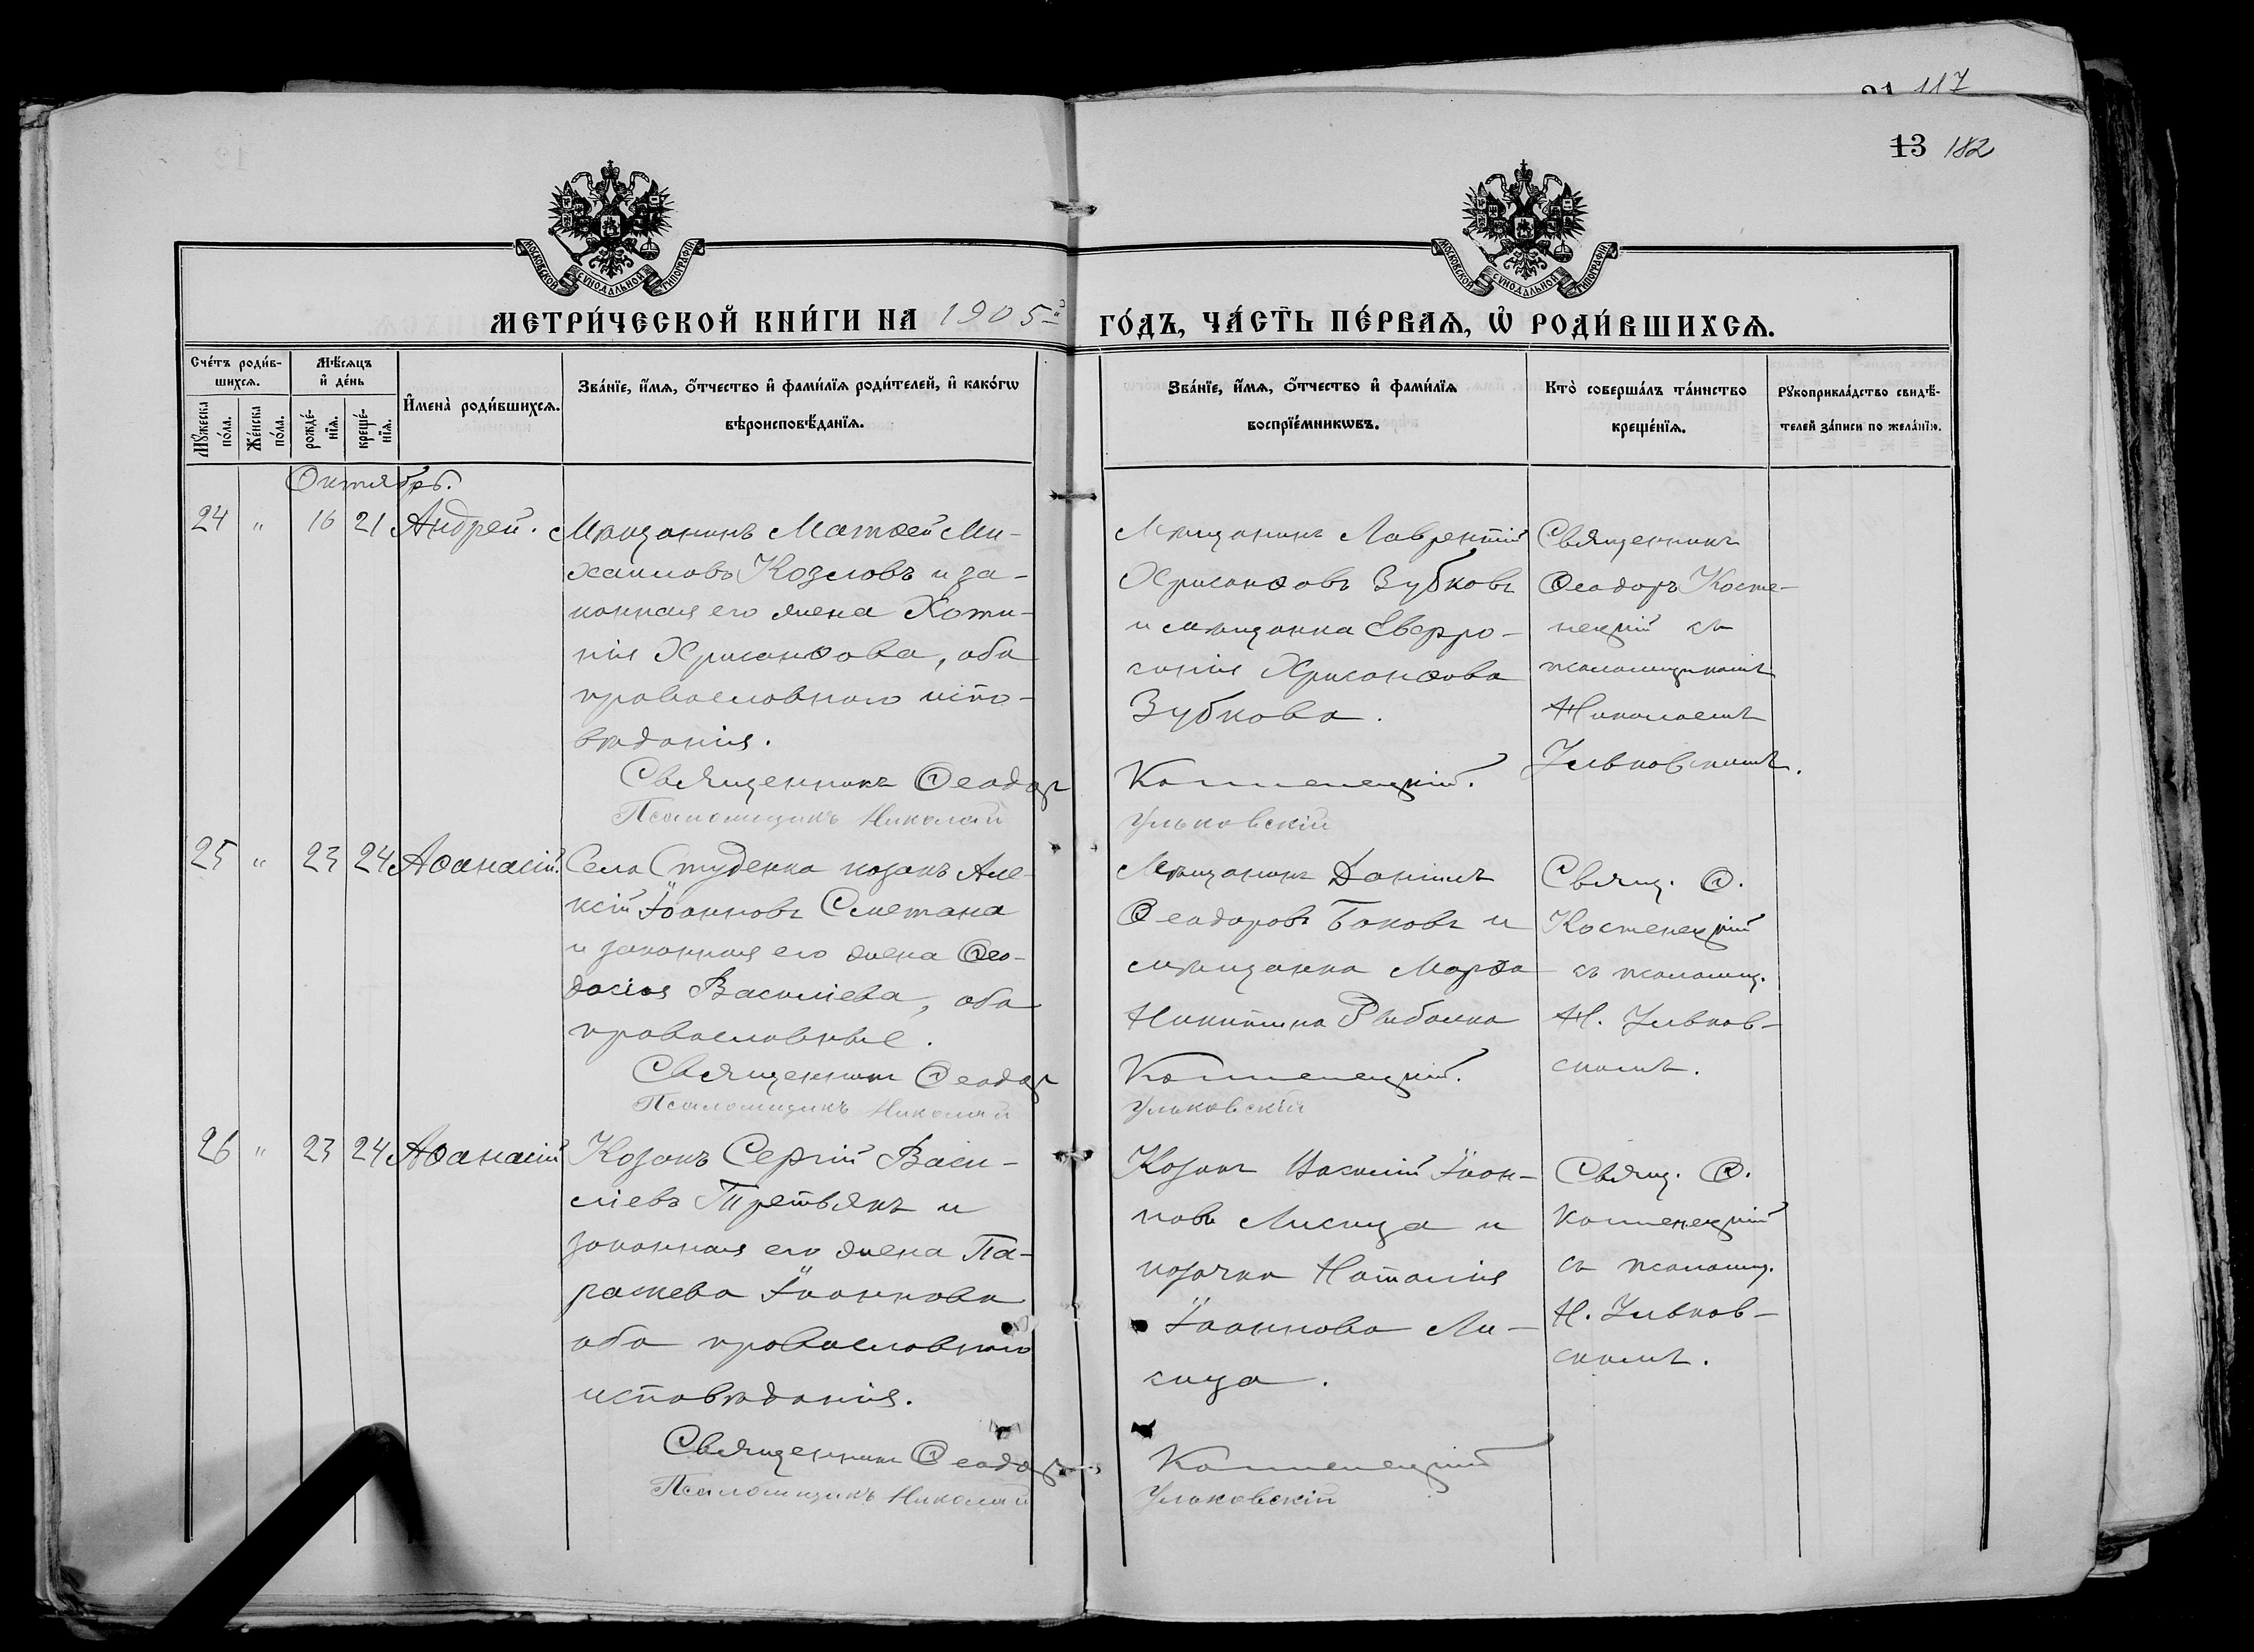 21 117
13 182
МОСКОВСКОЙ СѴНОДАЛЬНОЙ ТИПОГРАФІИ
МОСКОВСКОЙ СѴНОДАЛЬНОЙ ТИПОГРАФІИ
МЕТРИ́ЧЕСКОЙ КНИ́ГИ НА 1905й
ГО́ДЪ, ЧА́СТЬ ПЕ́РВАѦ, Ѡ҆ РОДИ́ВШИХСѦ.
Сче́тъ роди́в-
шихсѧ.
Мѣ́сѧцъ
и҆ де́нь
Мꙋ́жеска
по́ла.
Же́нска
по́ла.
рожде́-
нїѧ.
креще́-
нїѧ.
И҆мена̀ роди́вшихсѧ.
Зва́нїе, и҆́мѧ, ѻ҆́тчество и҆ фами́лїѧ роди́телей, и҆ како́гѡ
вѣроисповѣ́данїѧ.
Зва́нїе, и҆́мѧ, ѻ҆́тчество и҆ фами́лїѧ
воспрїе́мникѡвъ.
Кто̀ соверша́лъ та́инство
креще́нїѧ.
Рꙋкоприкла́дство свидѣ́-
телей за́писи по жела́нїю.
Октябрь.
24 " 16 21 Андрей.
Мѣщанинъ Матѳей Ми-
хаиловъ Козловъ и за-
конная его жена Хоти-
нія Хрисанѳова, оба
православнаго испо-
вѣданія.
Священникъ Ѳеодоръ
Псаломщикъ Николай
Мѣщанинъ Лаврентій
Хрисанѳовъ Зубковъ
и мѣщанка Евфро-
синія Хрисанѳова
Зубкова.
Костенецкій.
Ульковскій
Священникъ
Ѳеодоръ Косте-
нецкій съ
псаломщикомъ
Николаемъ
Ульковскимъ.
25 " 23 24 Аѳанасій.
Села Студенка козакъ Але-
ксій Іоанновъ Сметана
и законная его жена Ѳео-
досія Василіева, оба
православные.
Священникъ Ѳеодоръ
Псаломщикъ Николай
Мѣщанинъ Даніилъ
Ѳеодоровъ Боковъ и
мѣщанка Марѳа
Никитина Рыбалка
Костенецкій.
Ульковскій
Свящ. Ѳ.
Костенецкій
съ псаломщ.
Н. Ульков-
скимъ.
26 " 23 24 Аѳанасій
Козакъ Сергій Васи-
ліевъ Третьякъ и
законная его жена Па-
раскева Іоаннова
оба православнаго
исповѣданія.
Священникъ Ѳеодоръ
Псаломщикъ Николай
Козакъ Василій Іоан-
новъ Лисица и
козачка Наталія
Іоаннова Ли-
сица.
Костенецкій
Ульковскій
Свящ. Ѳ.
Костенецкій
съ псаломщ.
Н. Ульков-
скимъ.